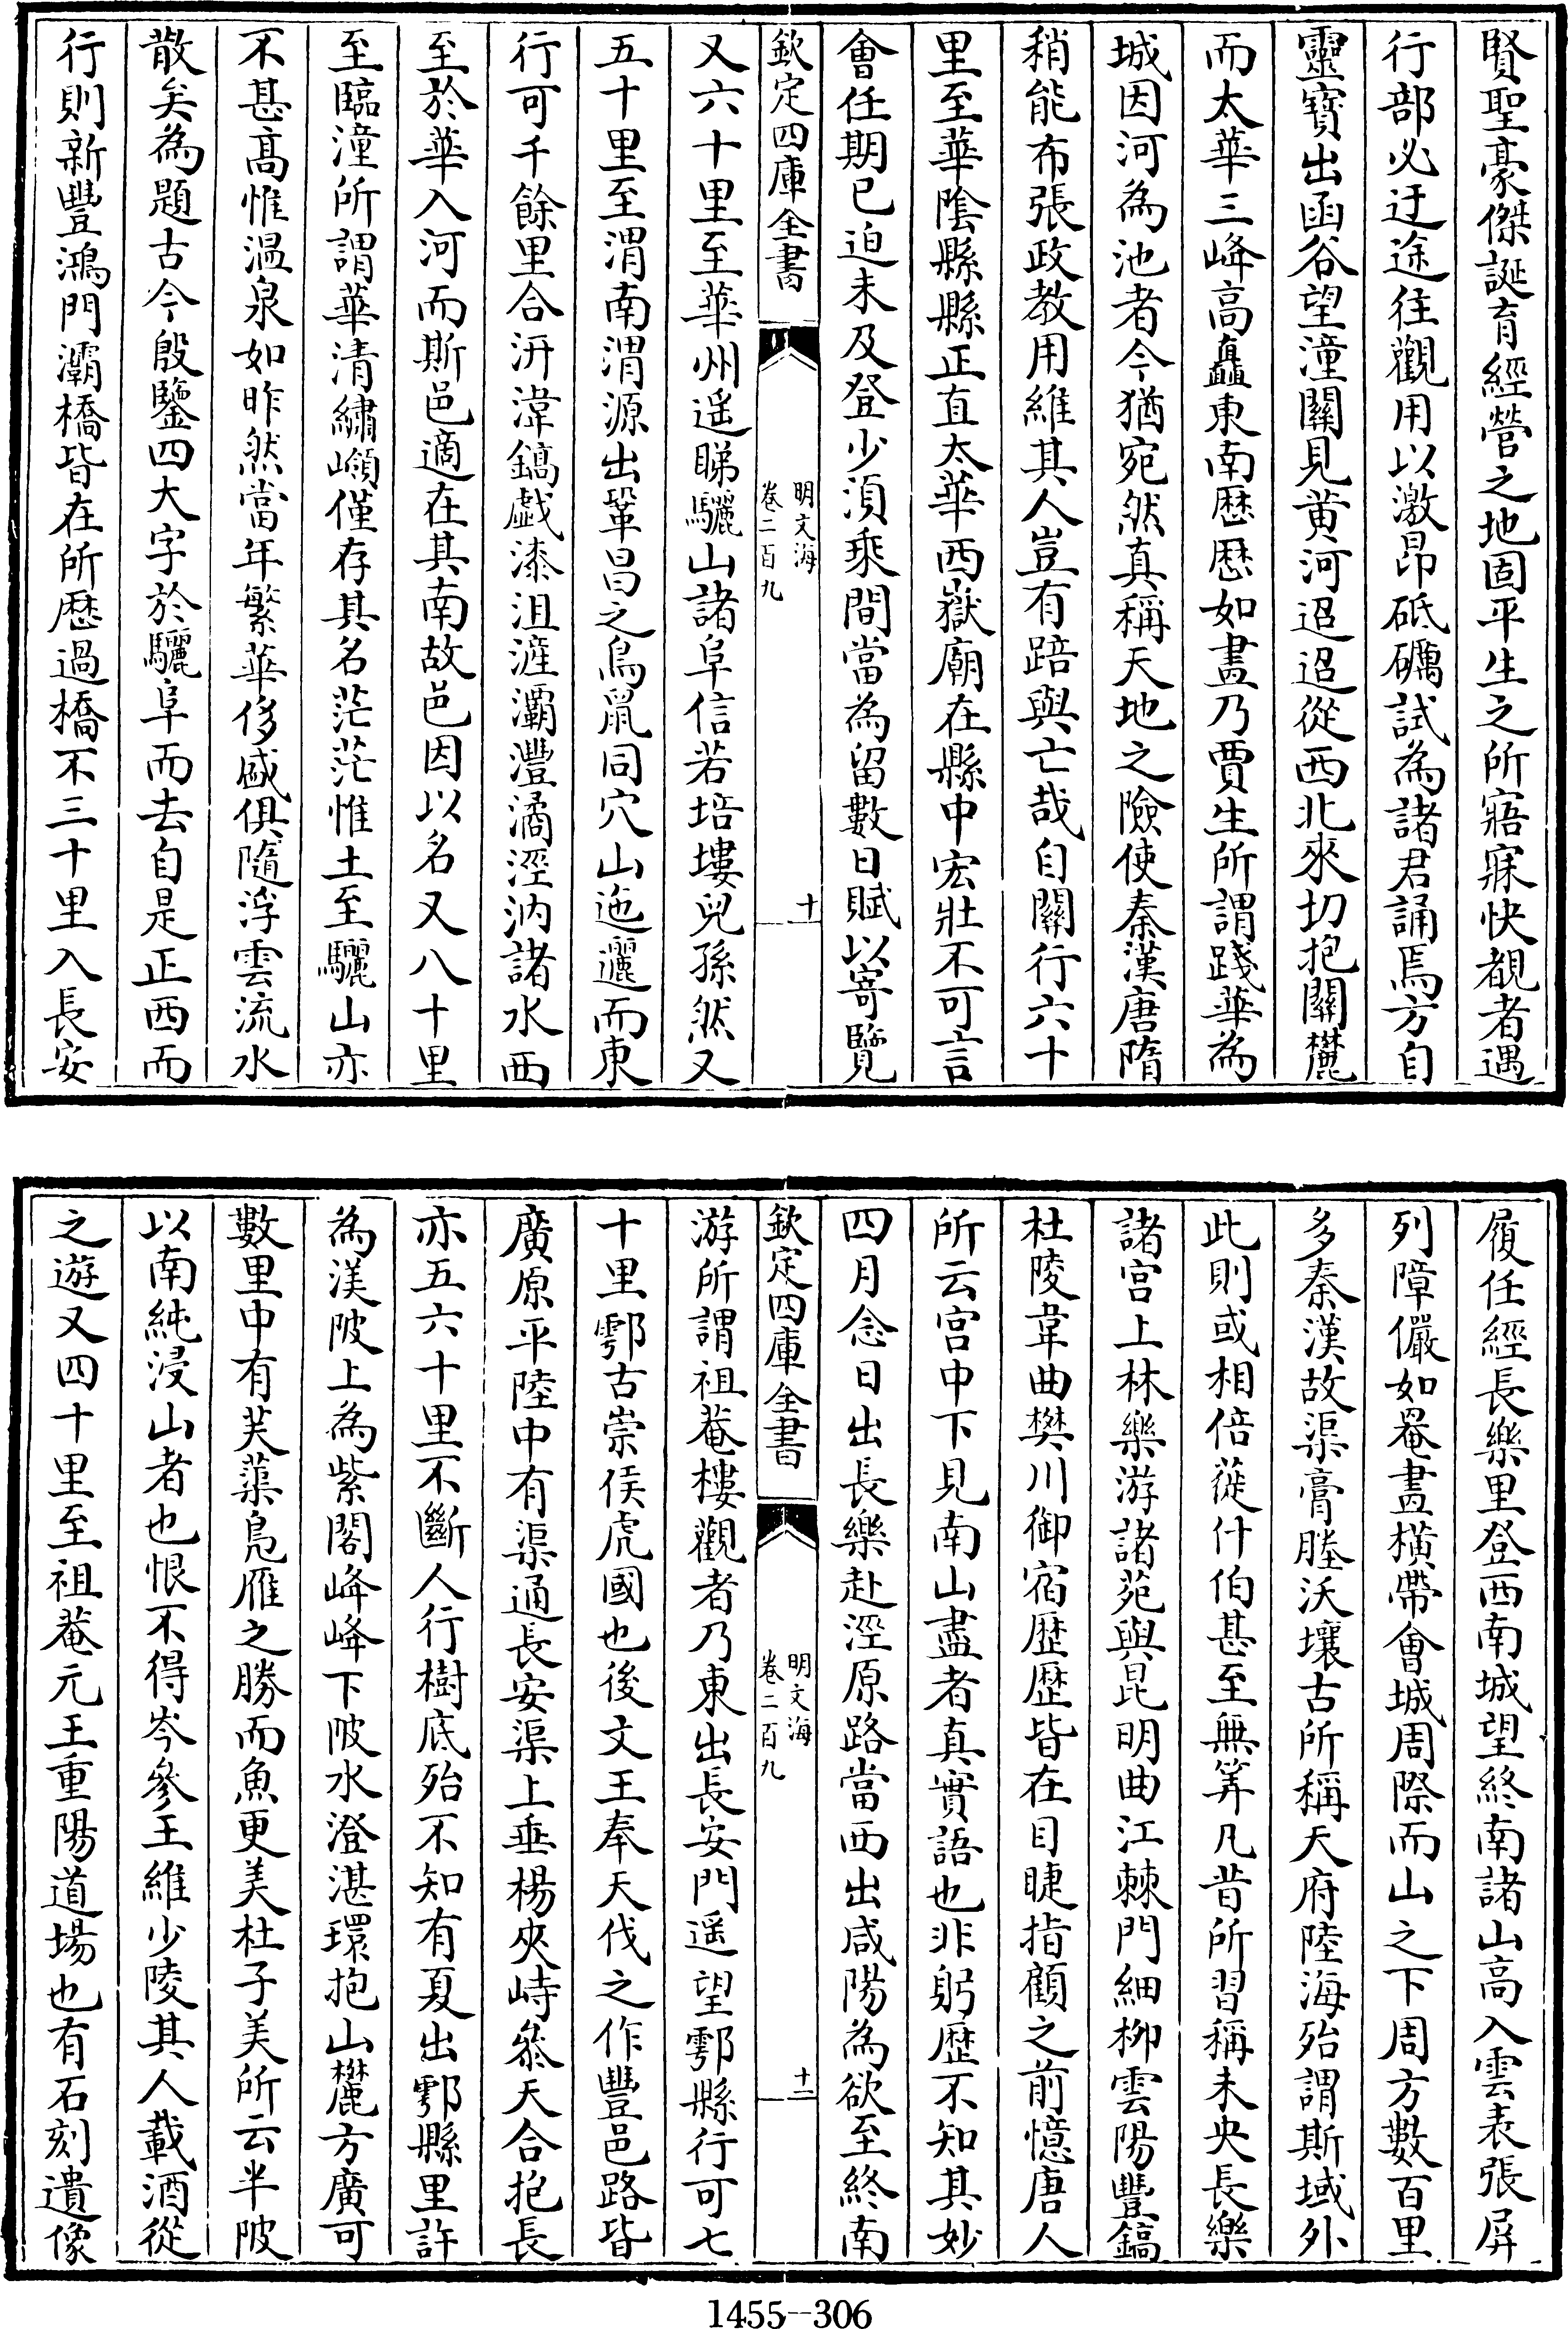 賢聖豪傑誕育經營之地固平生之所寤寐快覩者遇
行部必迂途往觀用以激昂砥礪試為諸君誦焉方自
靈寶出函谷望潼關見黄河迢迢從西北來切抱關麓
而太華三峰高矗東南歴歴如畫乃賈生所謂踐華為
城因河為池者今猶宛然真稱天地之險使秦漢唐隋
稍能布張政教用維其人豈有踣與亡哉自關行六十
里至華隂縣縣正直太華西嶽廟在縣中宏壯不可言
會任期已迫未及登少須乘間當為留數日賦以寄覽
欽定四庫全書
明文海
卷二百九
十
又六十里至華州遥睇驪山諸阜信若培塿兒孫然又
五十里至渭南渭源出鞏昌之鳥鼠同穴山迤邐而東
行可千餘里合汧湋鎬戲漆沮滻灞灃潏涇汭諸水西
至於華入河而斯邑適在其南故邑因以名又八十里
至臨潼所謂華清繡嶺僅存其名茫茫惟土至驪山亦
不甚髙惟温泉如昨然當年繁華侈盛俱隨浮雲流水
散矣為題古今殷鑒四大字於驪阜而去自是正西而
行則新豐鴻門灞橋皆在所歴過橋不三十里入長安
履任經長樂里登西南城望終南諸山高入雲表張屏
列障儼如罨畫橫帶會城周際而山之下周方數百里
多秦漢故渠膏塍沃壤古所稱天府陸海殆謂斯域外
此則或相倍蓰什伯甚至無筭凡昔所習稱未央長樂
諸宫上林樂游諸苑與昆明曲江棘門細柳雲陽豐鎬
杜陵韋曲樊川御宿歴歴皆在目睫指顧之前憶唐人
所云宫中下見南山盡者真實語也非躬歴不知其妙
四月念日出長樂赴涇原路當西出咸陽為欲至終南
欽定四庫全書
明文海
卷二百九
十一
游所謂祖菴樓觀者乃東出長安門遥望鄠縣行可七
十里鄠古崇侯虎國也後文王奉天伐之作豐邑路皆
廣原平陸中有渠通長安渠上垂楊夾峙叅天合抱長
亦五六十里不斷人行樹底殆不知有夏出鄠縣里許
為渼陂上為紫閣峰峰下陂水澄湛環抱山麓方廣可
數里中有芙蕖鳬雁之勝而魚更美杜子美所云半陂
以南純浸山者也恨不得岑參王維少陵其人載酒從
之遊又四十里至祖菴元王重陽道場也有石刻遺像
1455--306